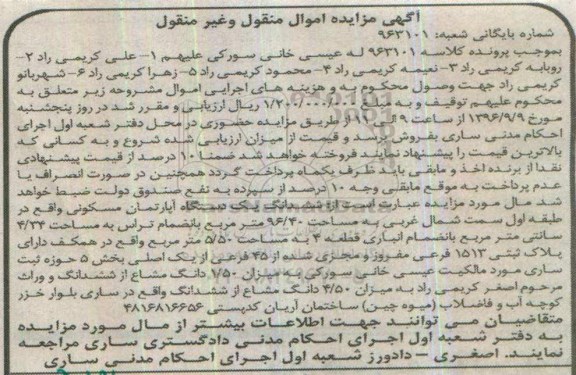 آگهی مزایده اموال منقول وغیر منقول
شماره بایگانی شعبه: ۹۶۳۱۰۱
بموجب پرونده کلاسه ۹۶۳۱۰۱ له عیسی خانی سورکی علیهم ۱- علی کریمی راد ۲-
روبابه کریمی راد ۳- نعیمه کریمی راد ۴- محمود کریمی راد ۵- زهرا کریمی راد ۶- شهربانو
کریمی راد جهت وصول محکوم به و هزینه های اجرایی اموال مشروحه زیر متعلق به
محکوم علیهم توقیف و به مبلغ ۱/۲۰۰/۰۰۰/۰۰۰ ریال ارزیابی و مقرر شد در روز پنجشنبه
مورخ ۱۳۹۶/۹/۹ از ساعت ۹ الی ۱۱ از طریق مزایده حضوری در محل دفتر شعبه اول اجرای
احکام مدنی ساری بفروش برسد و قیمت از میزان ارزیابی شده شروع و به کسانی که
بالاترین قیمت را پیشنهاد نمایند فروخته خواهد شد ضمنا ۱۰ درصد از قیمت پیشنهادی
نقدا از برنده اخذ و مابقی باید ظرف یکماه پرداخت گردد همچنین در صورت انصراف یا
عدم پرداخت به موقع مابقی وجه ۱۰ درصد از سپرده به نفع صندوق دولت ضبط خواهد
شد. مال مورد مزایده عبارت است از: ششدانگ یک دستگاه آپارتمان مسکونی واقع در
طبقه اول سمت شمال غربی به مساحت ۹۶/۴۰ متر مربع بانضمام تراس به مساحت ۴/۳۴
سانتی متر مربع بانضمام انباری قطعه ۴ به مساحت ۵/۵۰ متر مربع واقع در همکف دارای
پلاک ثبتی ۱۵۱۳ فرعی مفروز و مجزی شده از ۴۵ فرعی از یک اصلی بخش ۵ حوزه ثبت
ساری مورد مالکیت عیسی خانی سورکی به میزان ۱/۵۰ دانگ مشاع از ششدانگ و وراث
مرحوم اصغر کریمی راد به میزان ۴/۵۰ دانگ مشاع از ششدانگ واقع در ساری بلوار خزر
کوچه آب و فاضلاب (میوه چین) ساختمان آریان کدپستی ۴۸۱۶۸۱۶۶۵۶
متقاضیان می توانند جهت اطلاعات بیشتر از مال مورد مزایده
به دفتر شعبه اول اجرای احکام مدنی دادگستری ساری مراجعه
نمایند. اصغری – دادورز شعبه اول اجرای احکام مدنی ساری